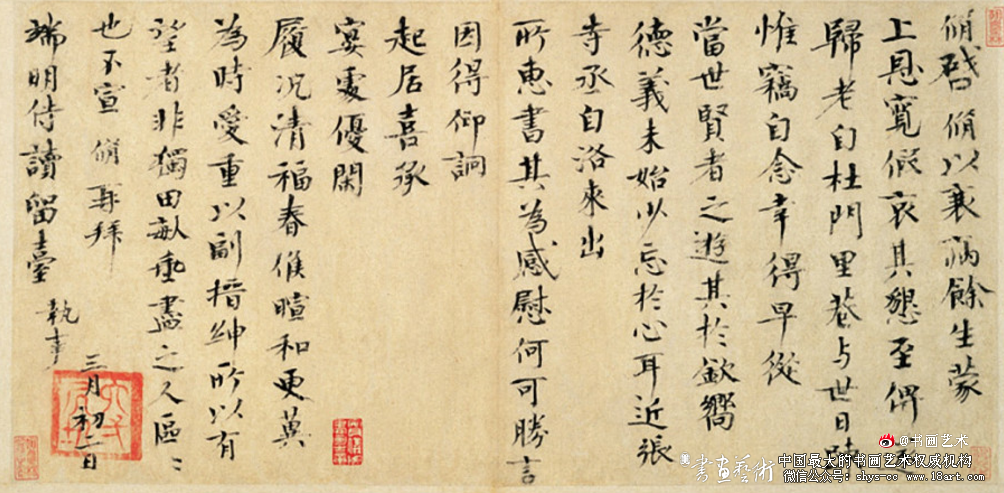 脩啓脩以衰病餘生蒙
上恩寬假哀其懇至俾
歸老自杜門里巷与世日
惟竊自念幸得早從
當世賢者之遊其於欽嚮
德義未始少忘於心耳近張
寺丞自洛來出
所惠書其為感慰何可勝言
因得仰詢
起居喜承
宴處優閑
履況清福春候暄和更冀
為時愛重以副搢紳所以有
望者非獨田畝垂盡之人區〻
也不宣 脩再拜
端明侍讀留臺 執事
三月初二日
@书画艺术
書畫藝術
中国最大的书画艺术权威机构
微信公众号:shys-cc www.18art.com